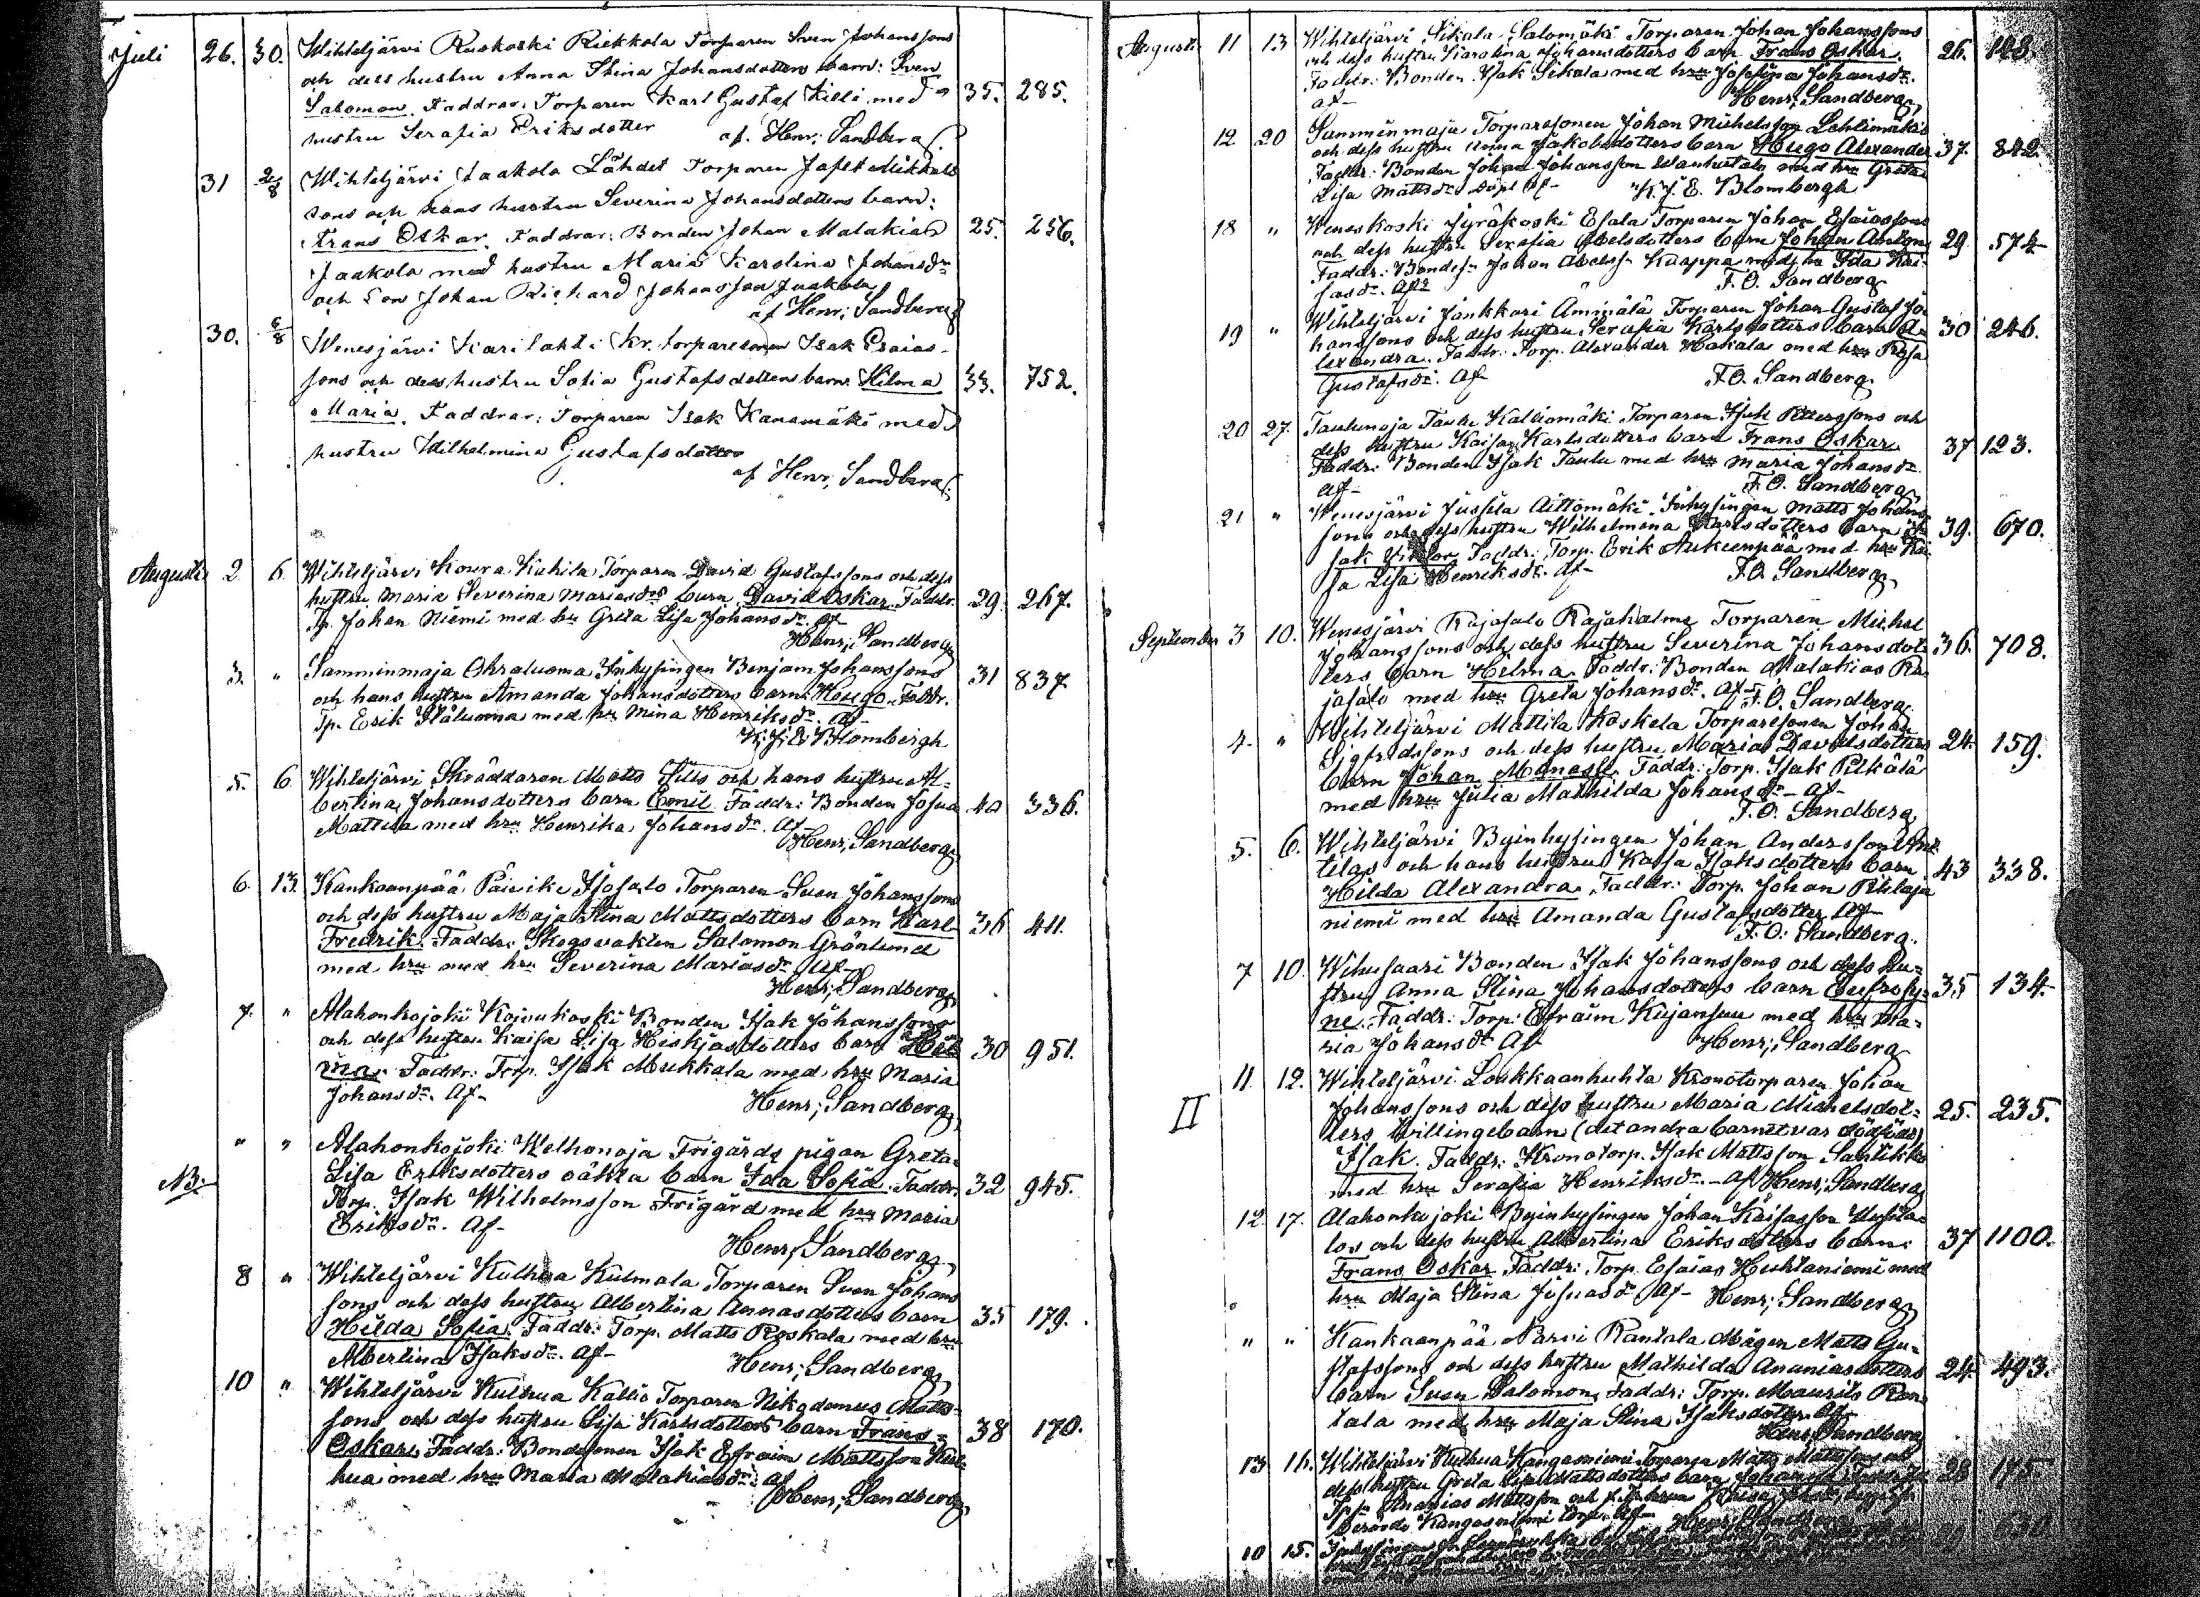 Juli 26. 30. Wihteljärvi Ruskoski Riekkola Torparen Sven Johanssons
och dess hustru Anna Stina Johansdotters barn: Sven
Salomon. Faddrar: Torparen Karl Gustaf Killi med 35. 285.
hustru Serafia Eriksdotter af. Henr; Sandberg
31 2/8 Wihteljärvi Jaakola Lähdet Torparen Jafet Mikkels
sons och hans hustru Severina Johansdotters barn:
Frans Oskar. Faddrar: Bonden Johan Malakias 25. 256.
Jaakola med hustru Maria Karolina Johansdr
och Son Johan Richard Johansson Jaakola
af Henr; Sandberg
30. 6/8 Wenesjärvi Karilahti Kr. torparesonen Isak Esaias-
sons och dess hustru Sofia Gustafsdotters barn: Hilma 33. 752.
Maria. Faddrar: Torparen Isak Kanamäki med
hustru Wilhelmina Gustafsdotter
af Henr; Sandberg
Augusti 2 6 Wihteljärvi Koura Kukila Torparen David Gustafssons och dess
hustru Maria Severina Mariasdrs barn David Oskar. Faddr. 29. 267.
Tp. Johan Niemi med hu Greta Lisa Johansdr. af
Henr; Sandberg
3. " Samminmaja Ohraluoma Inhysingen Benjam Johanssons 31 837
och hans hustru Amanda Johansdotters barn: Hugo. Faddr.
Tp. Erik Yläluoma med hu Mina Henriksdr. af-
K. J. E. Blombergh
5. 6 Wihteljärvi Skräddaren Matts Siiis och hans hustru Al-
bertina Johansdotters barn Emil. Faddr: Bonden Josua 40 336.
Mattila med hru Henrika Johansdr. af-
Henr; Sandberg
6. 13. Kankaanpää Päivike Isosalo Torparen Sven Johanssons
och dess hustru Maja Stina Mattsdotters barn Karl 36 411.
Fredrik. Faddr: Skogsvakten Salomon Grönlund
med hru med hru Severina Mariasdr. Af-
Henr; Sandberg
7. " Alahonkojoki Koivukoski Bonden Isak Johanssons
och dess hustru Kaisa Lisa Heskjasdotters barn Hil- 30 951.
ma. Faddr: Torp. Isak Mukkala med hru Maria
Johansdr. Af-
Henr; Sandberg
" " Alahonkojoki Welhonoja Frigårds pigan Greta
NB. Lisa Eriksdotters oäkta barn Ida Sofia. Faddr. 32 945.
Torp. Isak Wilhelmsson Frigård med hru Maria
Eriksdr. Af-
Henr; Sandberg
8 " Wihteljärvi Kulhua Kulmala Torparen Sven Johans
sons och dess hustru Albertina Annasdotters barn 35 179.
Hilda Sofia. Faddr: Torp. Matts Roskala med hru
Albertina Isaksdr. Af-
Henr; Sandberg
10 " Wihteljärvi Kulhua Kallio Torparen Nikodemus Matts-
sons och dess hustru Lisa Karlsdotters barn Frans 38 170.
Oskar. Faddr: Bondesonen Isak Efraim Mattsson Kul-
hua med hru Maria Malakiasdr. af
Henr; Sandberg
Augusti 11 13 Wihteljärvi Sikala Salomäki Torparen Johan Johanssons
och dess hustru Karolina Johansdotters barn Frans Oskar. 26.
Faddr: Bonden Isak Sikala med hru Josefina Johansdr.
af-
Henr; Sandberg
12 20 Samminmaja Torparesonen Johan Michelsson Lehtimäkis
och dess hustru Anna Jakobsdotters barn Hugo Alexander 37. 842.
Faddr: Bonden Johan Johansson Wanhatalo med hru Greta
Lisa Mattsdr. döpt af- K. J. E. Blombergh
18 " Weneskoski Jyräkoski Esala Torparen Johan Esaiassons
och dess hustru Serafia Abelsdotters barn Johan Anton 29 574
Faddr: Bondes. Johan Abelss. Knappa med hu Ida Kai-
sasdr. af
F. O. Sandberg
19 " Wihteljärvi Jankkari Ämmälä Torparen Johan Gustaf Jo-
hanssons och dess hustru Serafia Karlsdotters barn A- 30 246.
lexandra. Faddr: Torp. Alexander Hakala med hru
Gustafsdr. Af
F. O. Sandberg
20 27. Taulunoja Taulu Kalliomäki Torparen Isak Petterssons och
dess hustru Kaisa Karlsdotters barn Frans Oskar. 37 123.
Faddr: Bonden Isak Taulu med hru Maria Johansdr.
af-
F. O. Sandberg
21 " Wenesjärvi Jussila Aittomäki Inhysingen Matts Johans
sons och dess hustru Wilhelmina Karlsdotters barn I- 39. 670.
sak Viktor. Faddr: Torp. Erik Aukeenpää med hru Kai-
sa Lisa Henriksdr. Af-
F. O. Sandberg
September 3 10. Wenesjärvi Rajasalo Rajahalme Torparen Michel
Johanssons och dess hustru Severina Johansdot- 36. 708.
ters barn Hilma. Faddr: Bonden Malakias Ra-
jasalo med hru Greta Johansdr. af- F. O. Sandberg
4. " Wihteljärvi Mattila Koskela Torparesonen Johan
Sigfridssons och dess hustru Maria Davidsdotters 24. 159.
barn Johan Manasse. Faddr: Torp. Isak Pitkälä
med hru Julia Mathilda Johansdr.- af-
F. O. Sandberg
5. 6. Wihteljärvi Byinhysingen Johan Andersson Ant-
tilas och hans hustru Kaisa Isaksdotters barn 43 338.
Hilda Alexandra. Faddr: Torp. Johan Pihlaja
niemi med hru Amanda Gustafsdotter Af-
F. O. Sandberg.
7 10. Wihusaari Bonden Isak Johanssons och dess hu-
stru Anna Stina Johansdotters barn Eufrosy- 35 134
ne. Faddr: Torp: Efraim Kujansuu med hru Ma-
ria Johansdr Af- Henr; Sandberg
11. 12. Wihteljärvi Loukkaanhuhta Kronotorparen Johan
II Johanssons och dess hustru Maria Michelsdot- 25. 235.
ters tvillingebarn (det andra barnet var dödfödd)
Isak. Faddr: Kronotorp. Isak Mattsson Santikko
med hru Serafia Henriksdr.- af Henr; Sandberg
12. 17. Alahonkojoki Byinhysingen Johan Kaisasson
los och dess hustru Albertina Eriksdotters barn: 37 1100.
Frans Oskar. Faddr: Torp. Esaias Huhtaniemi med
hru Maja Stina Josuasdr Af- Henr; Sandberg
" " Kankaanpää Narvi Rantala Mågen Matts Gu-
stafssons och dess hustru Mathilda Ananiasdotters 24. 493.
barn Sven Salomon. Faddr: Torp. Maurits Ran-
tala med hru Maja Stina Isaksdotter. af-
Henr; Sandberg
13 16. Wihteljärvi Kulhua Kangasniemi Torparen Matts Mattssons och
dess hustru Greta Lisa Mattsdotters barn 28 175.
Ananias Mattsson och
Kangasniemi torp. af- Henr; Sandberg
10 15. Inhysingen 630